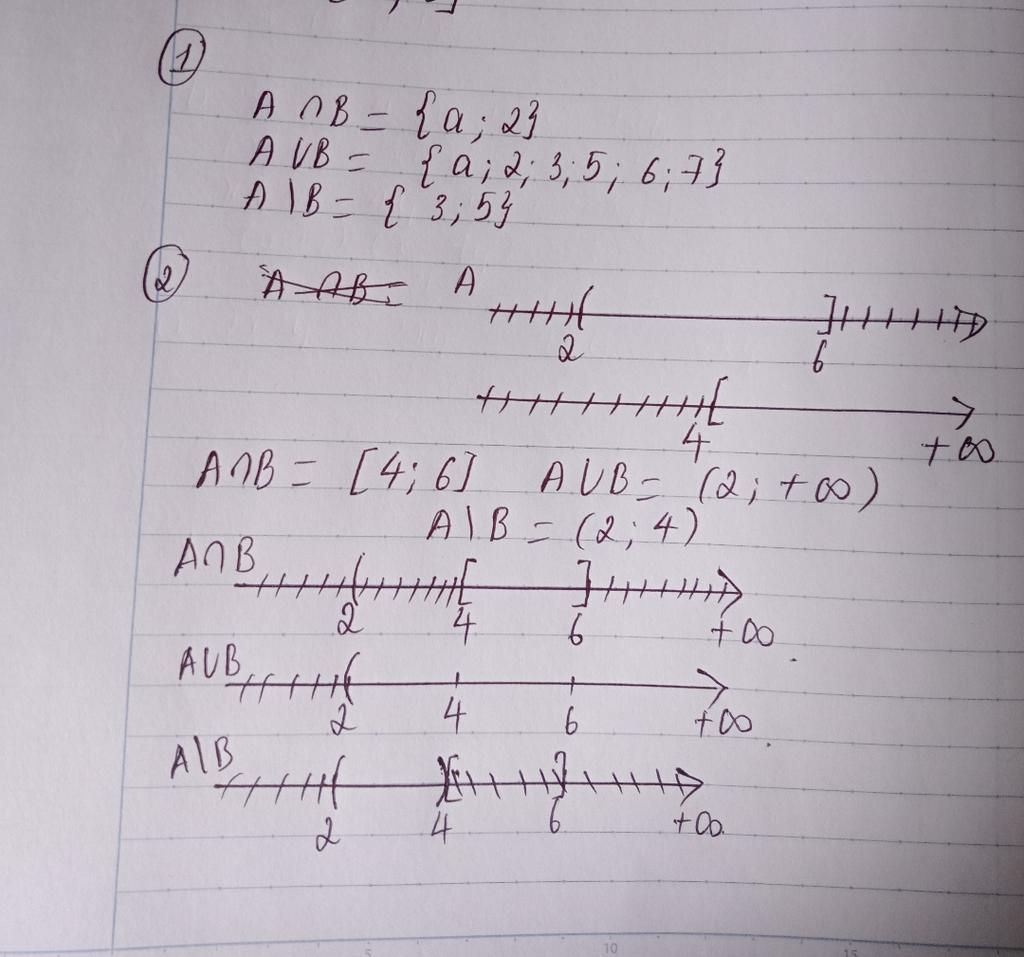 ①
A ∩ B = {a; 2}
A ∪ B = {a; 2; 3; 5; 6; 7}
A \ B = { 3; 5}
② A ∩ B = A
2 6
4 +∞
A∩B = [4; 6] A∪B = (2; +∞)
A \ B = (2; 4)
A∩B
2 4 6 +∞
A∪B
2 4 6 +∞
A\B
2 4 6 +∞
5 10 15